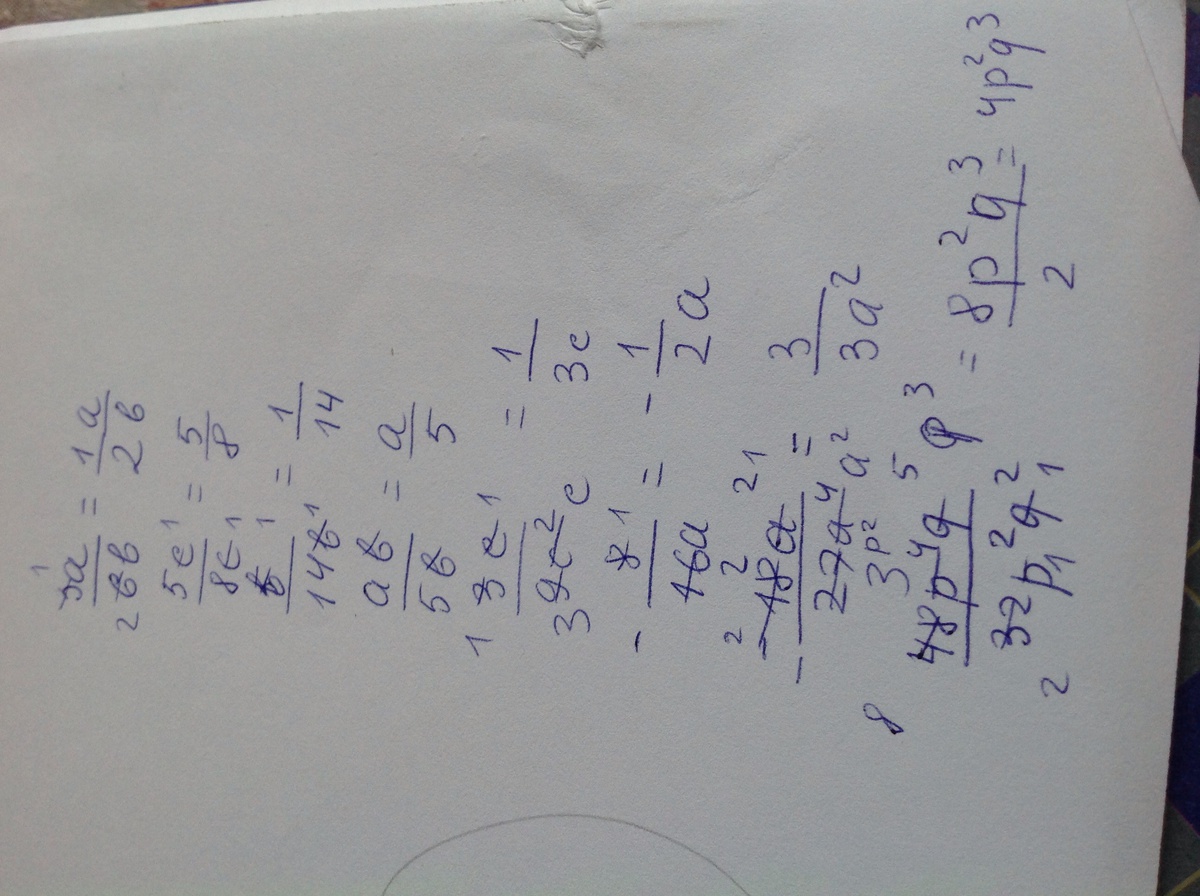 3a/6b = 1a/2b
5c/8c = 5/8
b/14b = 1/14
ab/5b = a/5
3c/9c² = 1/3c
- 8/16a = - 1/2a
- -18a²/27a⁴ = 3/3a²
48p⁴q⁵/32p²q² = 8p²q³/2 = 4p²q³